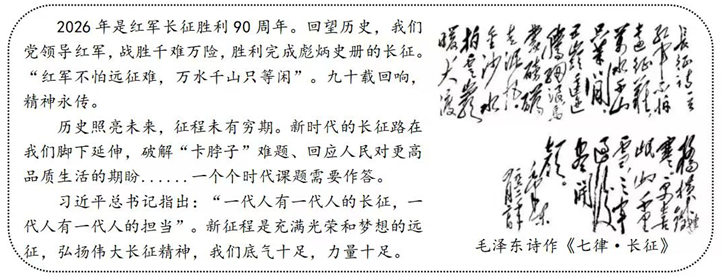 2026年是红军长征胜利90周年。回望历史，我们
党领导红军，战胜千难万险，胜利完成彪炳史册的长征。
“红军不怕远征难，万水千山只等闲”。九十载回响，
精神永传。
历史照亮未来，征程未有穷期。新时代的长征路在
我们脚下延伸，破解“卡脖子”难题、回应人民对更高
品质生活的期盼......一个个时代课题需要作答。
习近平总书记指出：“一代人有一代人的长征，一
代人有一代人的担当”。新征程是充满光荣和梦想的远
征，弘扬伟大长征精神，我们底气十足，力量十足。
长征诗一首
红军不怕
远征难
万水千山
只等闲
五岭逶迤
腾细浪乌
蒙磅礴
走泥丸
金沙水
拍云崖
暖大渡
桥横铁索
寒更喜
岷山千里
雪三军
过后
尽开
颜
毛泽东
毛泽东诗作《七律·长征》